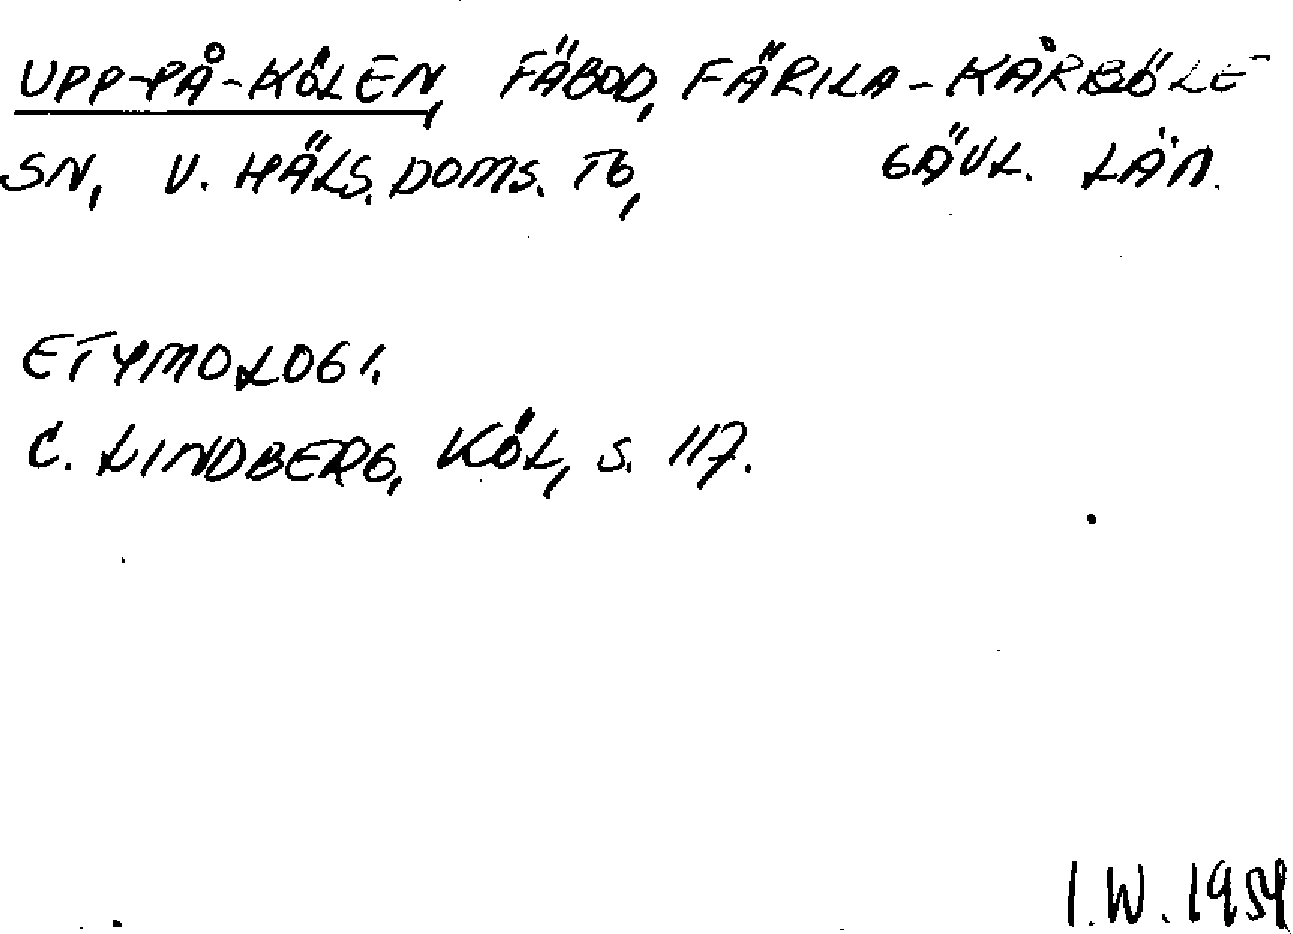 UPP-PÅ-KÖLEN, FÄBOD, FÄRILA-KÅRBÖLE
SN, V. HÄLS. DOMS. TG, GÄVL. LÄN.
ETYMOLOGI.
C. LINDBERG, KÖL, S. 117.
I.W. 1954